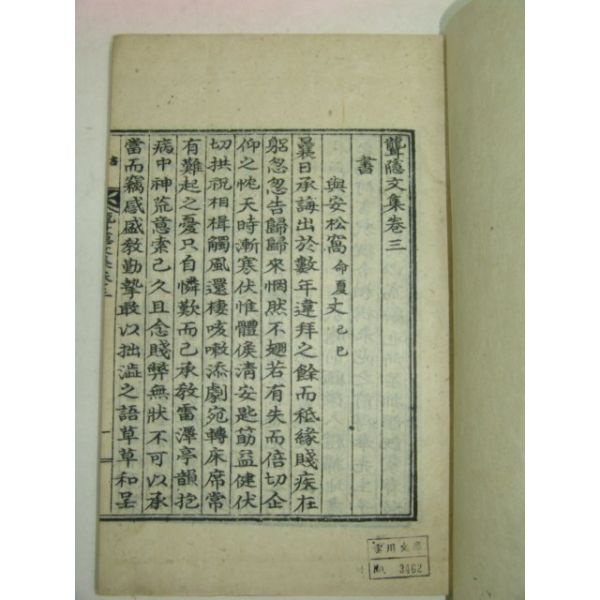 聾隱文集卷三
書
與安松窩 命夏 丈 己巳
曩日承誨出於數年違拜之餘而秪緣賤疾在
躬忽忽告歸歸來惘然不翅若有失而倍切企
仰之忱天時漸寒伏惟體候淸安匙筯益健伏
切拱祝相楫觸風還棲咳嗽添劇宛轉床席常
有難起之憂只自憐歎而已承敎雷澤亭韻抱
病中神荒意索已久且念賤弊無狀不可以承
當而竊感盛敎勤摯敢以拙澁之語草草和呈
No. 3462